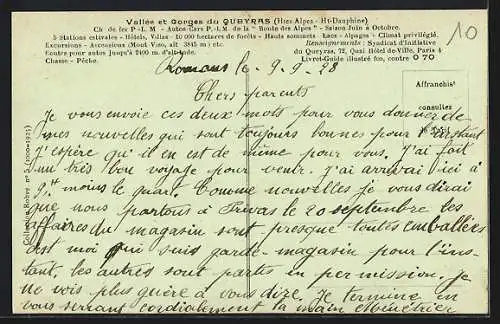 Vallée et Gorges du QUEYRAS (Htes-Alpes - Ht-Dauphiné)
Ch. de fer P.-L.M. - Autos-Cars P.-L.M. de la "Route des Alpes" - Saison Juin à Octobre.
5 Stations estivales - Hôtels, Villas - 10 000 hectares de forêts - Hauts sommets - Lacs - Alpages - Climat privilégié.
Excursions - Ascensions (Mont Viso, alt. 3845 m) etc.
Centre pour autos jusqu'à 2400 m. d'altitude.
Chasse - Pêche.
Renseignements : Syndicat d'Initiative
du Queyras, 72, Quai Hôtel-de-Ville, Paris 4
Livret-Guide illustré fco, contre 0 70
10
Romans le 9-9-28
Affranchir
consultez
Chers parents
Je vous envoie ces deux mots pour vous donner de
mes nouvelles qui sont toujours bonnes pour l'instant
j'espère qu'il en est de même pour vous. J'ai fait
un très bon voyage pour venir. J'ai arrivai ici à
9h moins le quart. Comme nouvelles je vous dirai
que nous partons à Privas le 20 septembre les
affaires du magasin sont presque toutes emballées
c'est moi qui suis garde-magasin pour l'ins-
tant. les autres sont partis en permission. Je
ne vois plus guère à vous dire. Je termine en
vous serrant cordialement la main
Collection Robey n° 5 (1000-1925)